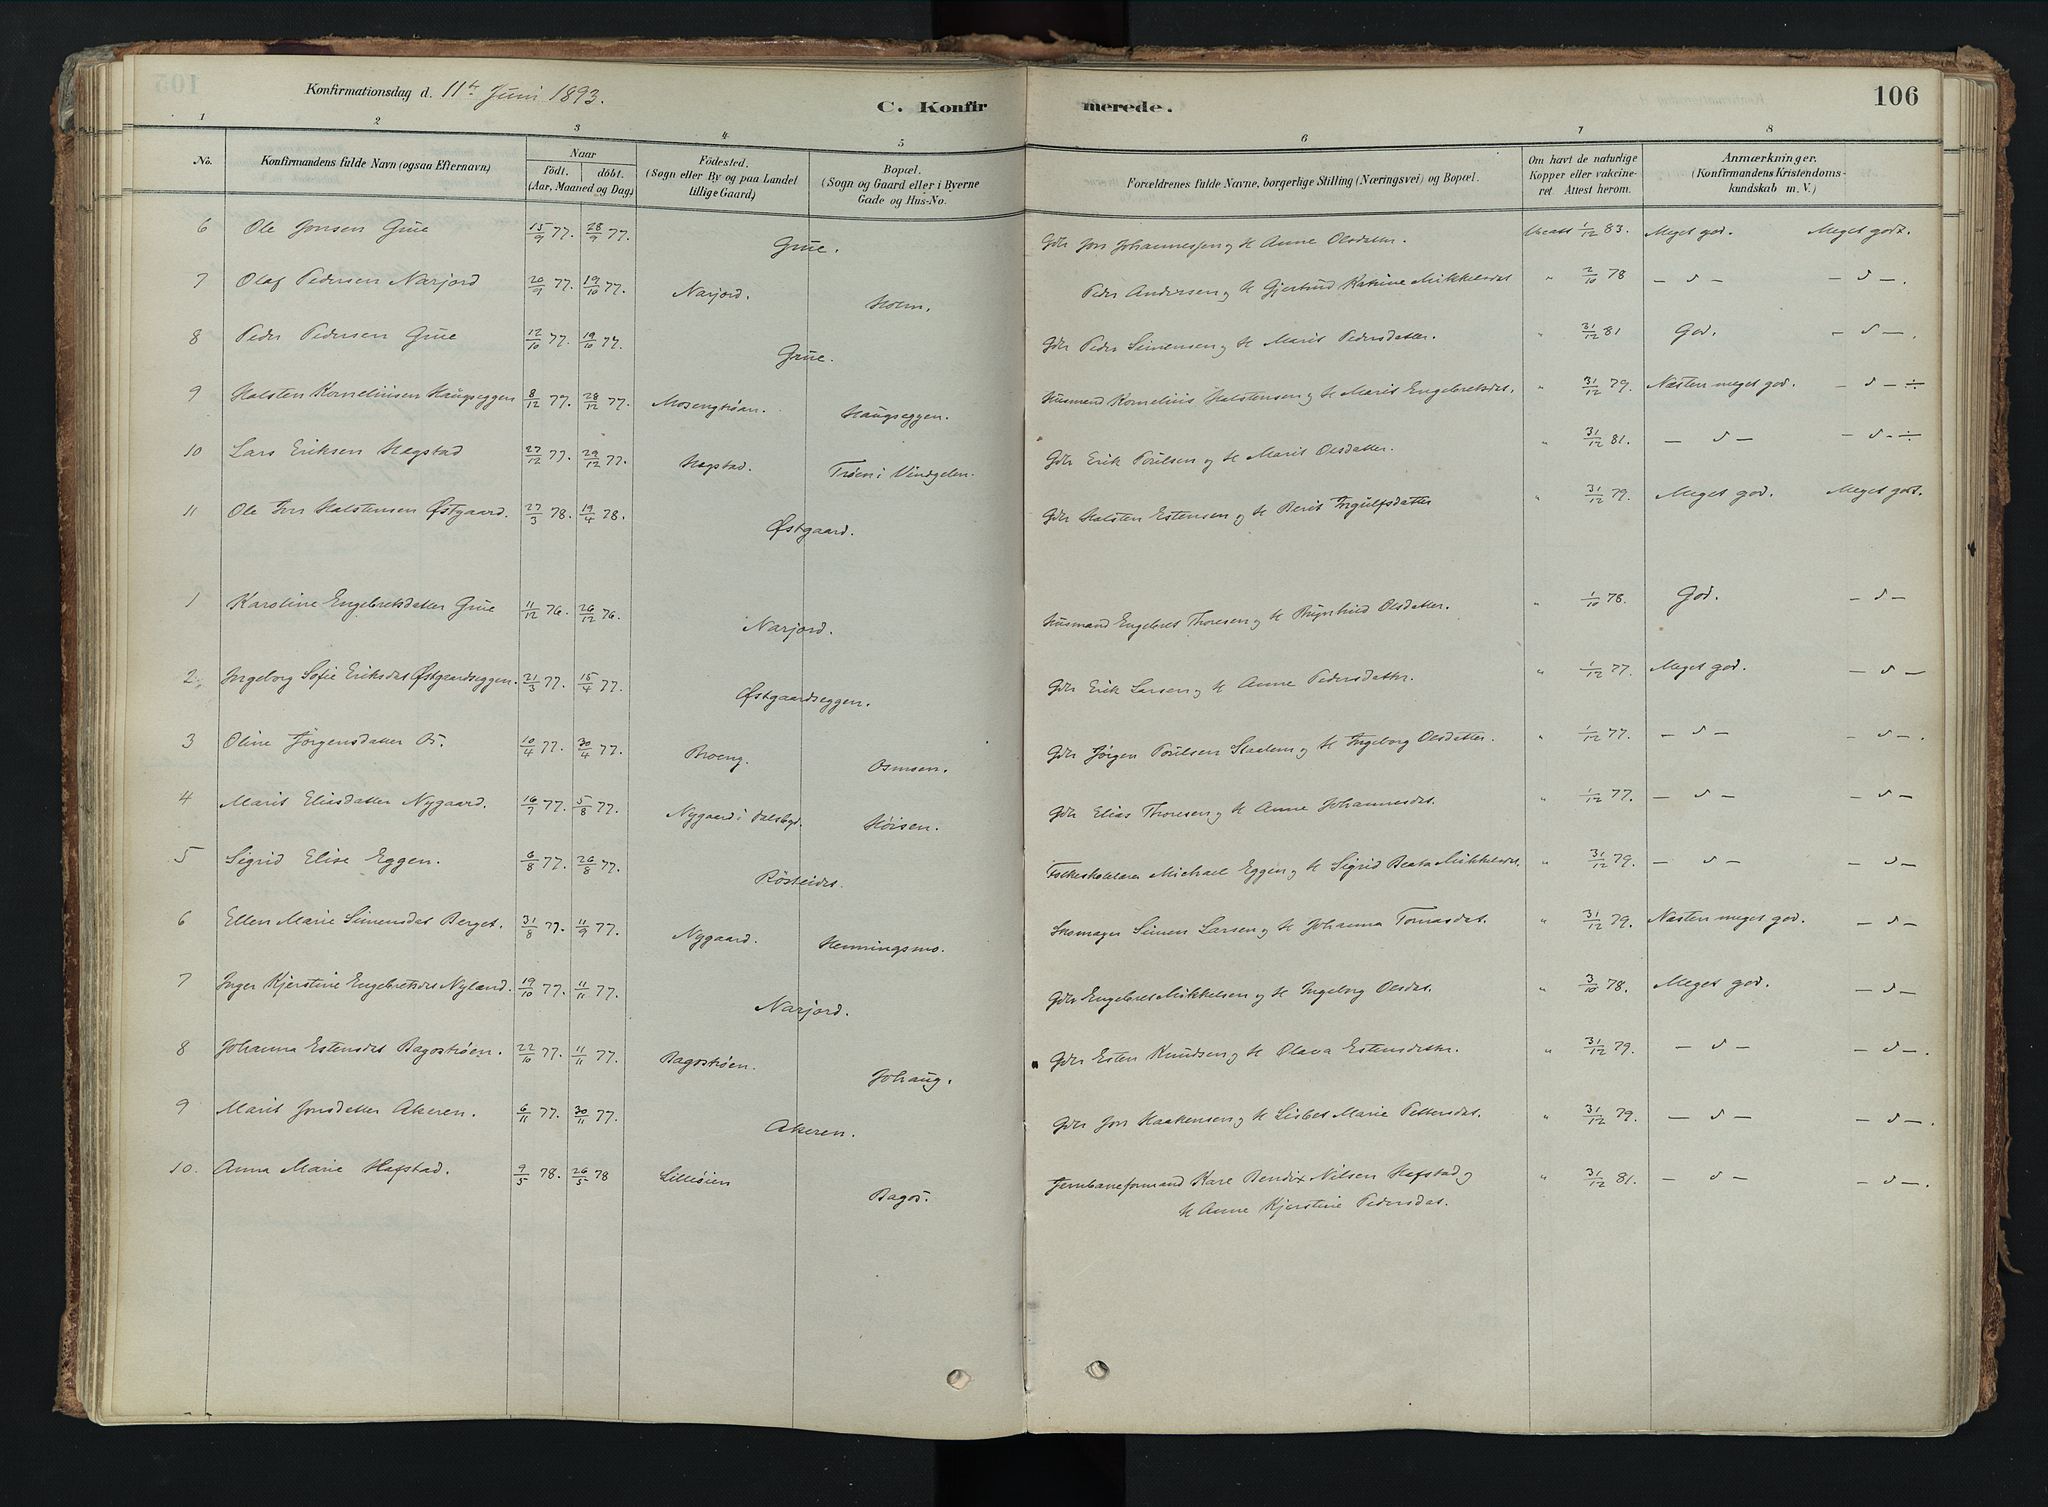 Konfirmationsdag d. 11te Juni 1893.
C. Konfirmerede.
106
1 2 3 4 5 6 7 8
No.
Konfirmandens fulde Navn (ogsaa Efternavn)
Naar
födt. döbt.
(Aar, Maaned og Dag)
Födested.
(Sogn eller By og paa Landet
tillige Gaard)
Bopæl.
(Sogn og Gaard eller i Byerne
Gade og Hus-No.
Forældrenes fulde Navne, borgerlige Stilling (Næringsvei) og Bopæl.
Om havt de naturlige
Kopper eller vakcine-
ret Attest herom.
Anmærkninger.
(Konfirmandens Kristendoms-
kundskab m. V.)
6 Ole Jonsen Grue 15/9 77. 28/9 77. Grue. Gdr Jon Johannessen og H Anne Olsdatter. 1/12 83. Meget god. Meget godt.
7 Olaf Pedersen Narjord 20/9 77. 19/10 77. Narjord. Holm. Peder Andersen og H Gjertrud Katrine Mikkelsdat " 2/10 78 — " — — " —.
8 Peder Pedersen Grue 12/10 77. 19/10 77. Grue. Gdr Peder Simensen og H Marit Pedersdatter. " 31/12 81 God. — " —.
9 Halsten Korneliusen Haugseggen 8/12 77. 28/12 77. Mosengtrøan. Haugseggen. Husmand Kornelius Halstensen og H Marit Engebretsdat. " 31/12 79. Næsten meget god. — " — ÷
10 Lars Eriksen Hagstad 27/12 77. 29/12 77. Hagstad. Trøen i Vindgelen. Gdr Erik Poulsen og H Marit Olsdatter. " 31/12 81. — " — — " — ÷
11 Ole Iver Halstensen Østgaard. 27/3 78. 19/4 78. Østgaard. Gdr Halsten Estensen og H Berit Ingulfsdatter " 31/12 79. Meget god. Meget godt.
1 Karoline Engebretsdatter Grue 11/12 76. 26/12 76. Narjord. Husmand Engebret Thoresen og H Brynhild Olsdatter. " 1/10 78. God. — " —
2. Ingeborg Sofie Eriksdat Østgaardseggen. 21/3 77. 15/4 77. Østgaardseggen. Gdr Erik Larsen og H Anne Pedersdatter. " 1/12 77. Meget god. — " —
3 Oline Jørgensdatter Os. 10/4 77. 30/4 77. Broeng. Osmoen. Gdr Jørgen Poulsen og H Ingeborg Olsdatter. " 1/12 77. — " — — " —.
4 Marit Eliasdatter Nygaard. 16/7 77. 5/8 77. Nygaard i Dalsbyd. Høisen. Gdr Elias Thoresen og H Anne Johannesdat. " 1/12 77. — " — — " —
5 Sigrid Elise Eggen. 6/8 77. 26/8 77. Røsteidet. Folkeskolelærer Michael Eggen og H Sigrid Beata Mikkelsdt. " 31/12 79. — " — — " —
6 Ellen Marie Simensdat Berget. 31/8 77. 11/9 77. Nygaard. Henningsmo. Skomager Simen Larsen og H Johanna Tomasdat. " 31/12 79. Næsten meget god. — " —
7 Inger Kjerstine Engebretsdat Nyland. 19/10 77. 11/11 77. Narjord. Gdr Engebret Mikkelsen og H Ingeborg Olsdat. " 3/10 78. Meget god. — " —
8 Johanna Estensdat Bagostrøen. 22/10 77. 11/11 77. Bagostrøen. Johaug. Gdr Esten Knudsen og H Olava Estensdatter. " 31/12 79. — " — — " —.
9 Marit Jonsdatter Akeren. 6/11 77. 30/11 77. Akeren. Gdr Jon Haakensen og H Lisbet Marie Pettersdat. " 31/12 79. — " — — " —.
10. Anna Marie Hafstad. 9/5 78. 26/5 78 Lilleøien Bagos. Jernbaneformand Kare Bendix Nilsen Hafstad og " 31/12 81. — " — — " —.
H Anne Kjerstine Pedersdat.